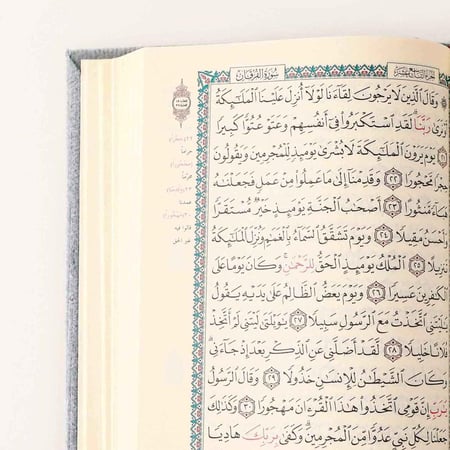 الجزء التاسع عشر
سُورَةُ الفُرْقَانِ
۞ وَقَالَ ٱلَّذِينَ لَا يَرْجُونَ لِقَآءَنَا لَوْلَآ أُنزِلَ عَلَيْنَا ٱلْمَلَٰٓئِكَةُ
أَوْ نَرَىٰ رَبَّنَا ۗ لَقَدِ ٱسْتَكْبَرُوا۟ فِىٓ أَنفُسِهِمْ وَعَتَوْ عُتُوًّا كَبِيرًا
٢١ يَوْمَ يَرَوْنَ ٱلْمَلَٰٓئِكَةَ لَا بُشْرَىٰ يَوْمَئِذٍ لِّلْمُجْرِمِينَ وَيَقُولُونَ
حِجْرًا مَّحْجُورًا ٢٢ وَقَدِمْنَآ إِلَىٰ مَا عَمِلُوا۟ مِنْ عَمَلٍ فَجَعَلْنَٰهُ
هَبَآءً مَّنثُورًا ٢٣ أَصْحَٰبُ ٱلْجَنَّةِ يَوْمَئِذٍ خَيْرٌ مُّسْتَقَرًّا
وَأَحْسَنُ مَقِيلًا ٢٤ وَيَوْمَ تَشَقَّقُ ٱلسَّمَآءُ بِٱلْغَمَٰمِ وَنُزِّلَ ٱلْمَلَٰٓئِكَةُ
تَنزِيلًا ٢٥ ٱلْمُلْكُ يَوْمَئِذٍ ٱلْحَقُّ لِلرَّحْمَٰنِ ۚ وَكَانَ يَوْمًا عَلَى
ٱلْكَٰفِرِينَ عَسِيرًا ٢٦ وَيَوْمَ يَعَضُّ ٱلظَّالِمُ عَلَىٰ يَدَيْهِ يَقُولُ
يَٰلَيْتَنِى ٱتَّخَذْتُ مَعَ ٱلرَّسُولِ سَبِيلًا ٢٧ يَٰوَيْلَتَىٰ لَيْتَنِى لَمْ أَتَّخِذْ
فُلَانًا خَلِيلًا ٢٨ لَّقَدْ أَضَلَّنِى عَنِ ٱلذِّكْرِ بَعْدَ إِذْ جَآءَنِى ۗ
وَكَانَ ٱلشَّيْطَٰنُ لِلْإِنسَٰنِ خَذُولًا ٢٩ وَقَالَ ٱلرَّسُولُ
يَٰرَبِّ إِنَّ قَوْمِى ٱتَّخَذُوا۟ هَٰذَا ٱلْقُرْءَانَ مَهْجُورًا ٣٠ وَكَذَٰلِكَ
جَعَلْنَا لِكُلِّ نَبِىٍّ عَدُوًّا مِّنَ ٱلْمُجْرِمِينَ ۗ وَكَفَىٰ بِرَبِّكَ هَادِيًا